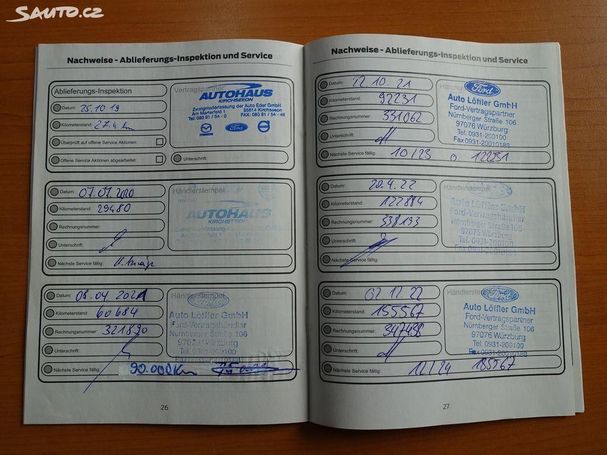 SAUTO.CZ
Nachweise - Ablieferungs-Inspektion und Service
Ablieferungs-Inspektion
Datum: 25.10.19
Kilometerstand: 27.4 km
Überprüft auf offene Service Aktionen
Offene Service Aktionen abgearbeitet
Unterschrift:
AUTOHAUS
KIRCHSEEON
Zweigniederlassung der Auto Eder GmbH
85614 Kirchseeon
Datum: 07.07.2020
Händlerstempel
Kilometerstand: 29480
Rechnungsnummer:
Unterschrift:
Nächste Service fällig:
AUTOHAUS
KIRCHSEEON
Datum: 08.04.2021
Händlerstempel
Kilometerstand: 60684
Rechnungsnummer: 321830
Unterschrift:
Nächste Service fällig: 90.000 km
Ford
Auto Löffler GmbH
Ford-Vertragshändler
Nürnberger Straße 106
97076 Würzburg
Tel. 0931-200100
26
Nachweise - Ablieferungs-Inspektion und Service
Datum: 12.10.21
Kilometerstand: 92231
Rechnungsnummer: 331062
Unterschrift:
Nächste Service fällig: 10/23 o 122231
Ford
Auto Löffler GmbH
Ford-Vertragspartner
Nürnberger Straße 106
97076 Würzburg
Tel. 0931-200100
Fax 0931-20010185
Datum: 20.4.22
Kilometerstand: 122884
Rechnungsnummer: 338133
Unterschrift:
Nächste Service fällig:
Auto Löffler GmbH
Ford-Vertragshändler
Nürnberger Straße 106
97076 Würzburg
Tel. 0931-200100
Datum: 02.12.22
Kilometerstand: 155567
Rechnungsnummer: 347438
Unterschrift:
Nächste Service fällig: 12/24 185567
Ford
Auto Löffler GmbH
Ford-Vertragspartner
Nürnberger Straße 106
97076 Würzburg
Tel. 0931-200100
Fax 0931-20010185
27